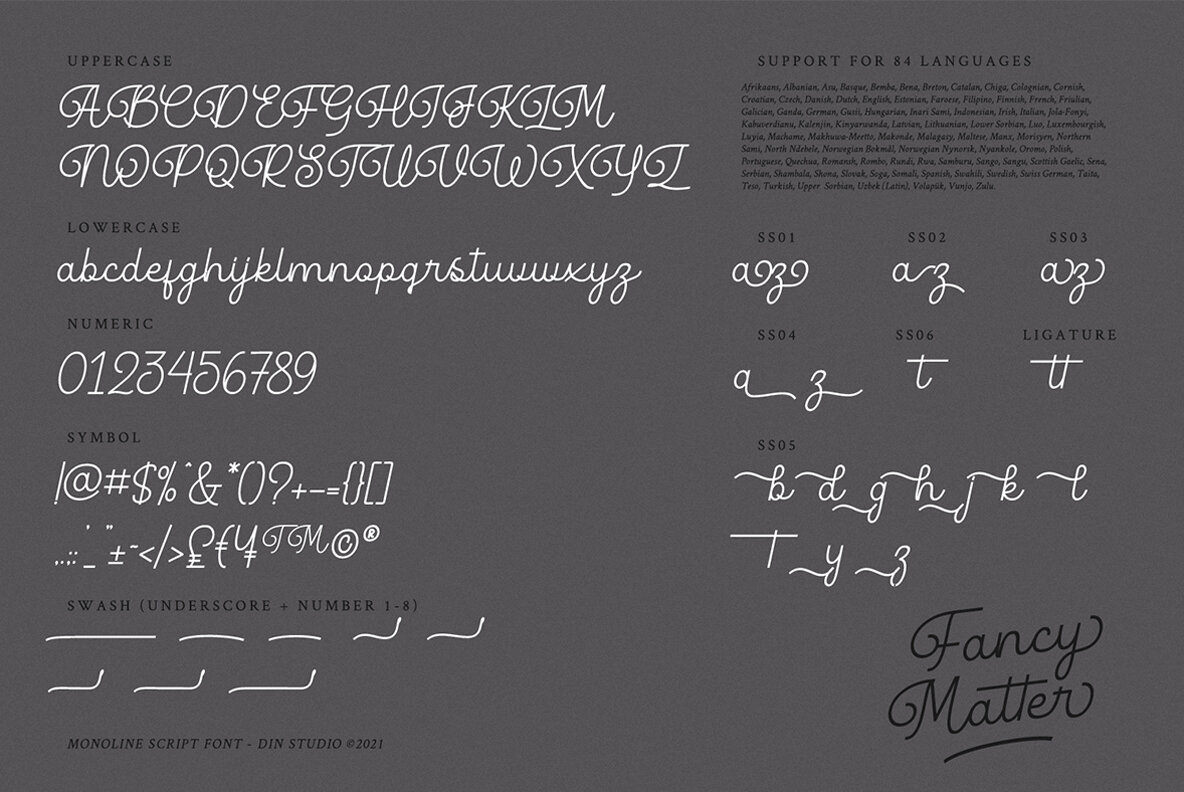 UPPERCASE
ABCDEFGHIJKLM
NOPQRSTUVWXYZ
LOWERCASE
abcdefghijklmnopqrstuvwxyz
NUMERIC
0123456789
SYMBOL
!@#$%^&*()?+-={}[]
,.;:'_"±~</>£€¥™©®
SWASH (UNDERSCORE + NUMBER 1-8)
MONOLINE SCRIPT FONT - DIN STUDIO ©2021
SUPPORT FOR 84 LANGUAGES
Afrikaans, Albanian, Asu, Basque, Bemba, Bena, Breton, Catalan, Chiga, Colognian, Cornish,
Croatian, Czech, Danish, Dutch, English, Estonian, Faroese, Filipino, Finnish, French, Friulian,
Galician, Ganda, German, Gusii, Hungarian, Inari Sami, Indonesian, Irish, Italian, Jola-Fonyi,
Kabuverdianu, Kalenjin, Kinyarwanda, Latvian, Lithuanian, Lower Sorbian, Luo, Luxembourgish,
Luyia, Machame, Makhuwa-Meetto, Makonde, Malagasy, Maltese, Manx, Morisyen, Northern
Sami, North Ndebele, Norwegian Bokmål, Norwegian Nynorsk, Nyankole, Oromo, Polish,
Portuguese, Quechua, Romansh, Rombo, Rundi, Rwa, Samburu, Sango, Sangu, Scottish Gaelic, Sena,
Serbian, Shambala, Shona, Slovak, Soga, Somali, Spanish, Swahili, Swedish, Swiss German, Taita,
Teso, Turkish, Upper Sorbian, Uzbek (Latin), Volapük, Vunjo, Zulu.
SS01 SS02 SS03
az az az
SS04 SS06 LIGATURE
a z t tt
SS05
b d g h j k l
t y z
Fancy
Matter